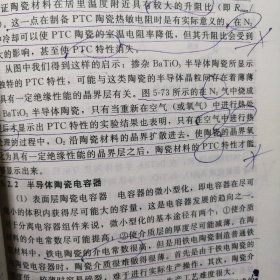 证陶瓷材料在居里温度附近具有较大的升阻比（即 Rmax/
），这一点在制备 PTC 陶瓷热敏电阻时是有实际意义的。在 N₂
中冷却可以使 PTC 陶瓷的室温电阻率降低，但其升阻比会受到
大的影响，甚至使 PTC 特性消失。
从图中我们得到这样的启示：掺杂 BaTiO₃ 半导体陶瓷所显示
独特的 PTC 特性，可能与这类陶瓷的半导体晶粒间存在着薄薄
具有一定绝缘性能的晶界层有关。图 5-73 所示的在 N₂ 气中烧成
BaTiO₃ 半导体陶瓷，只有当重新在空气（或氧气）中进行热处
后才显示出 PTC 特性的实验结果也表明，只有在空气中进行热
处理的过程中，O₂ 沿陶瓷材料的晶界扩散进去，使陶瓷的晶界氧
化为具有一定绝缘性能的晶界层之后，陶瓷材料的 PTC 特性才能
显示出来。
2.2 半导体陶瓷电容器
（1）表面层陶瓷电容器 电容器的微小型化，即电容器在尽可
小的体积内获得尽可能大的容量，这是电容器发展的趋向之一。
于分离电容器组件来说，微小型化的基本途径有两个：①使介质
料的介电常数尽可能提高；②使介质层的厚度尽可能减薄。在陶
材料中，铁电陶瓷的介电常数很高，但是用铁电陶瓷制造普通铁
陶瓷电容器时，陶瓷介质很难做得很薄。首先是由于铁电陶瓷的
，较薄时容易碎裂，难于进行实际生产操作；其次，陶瓷介